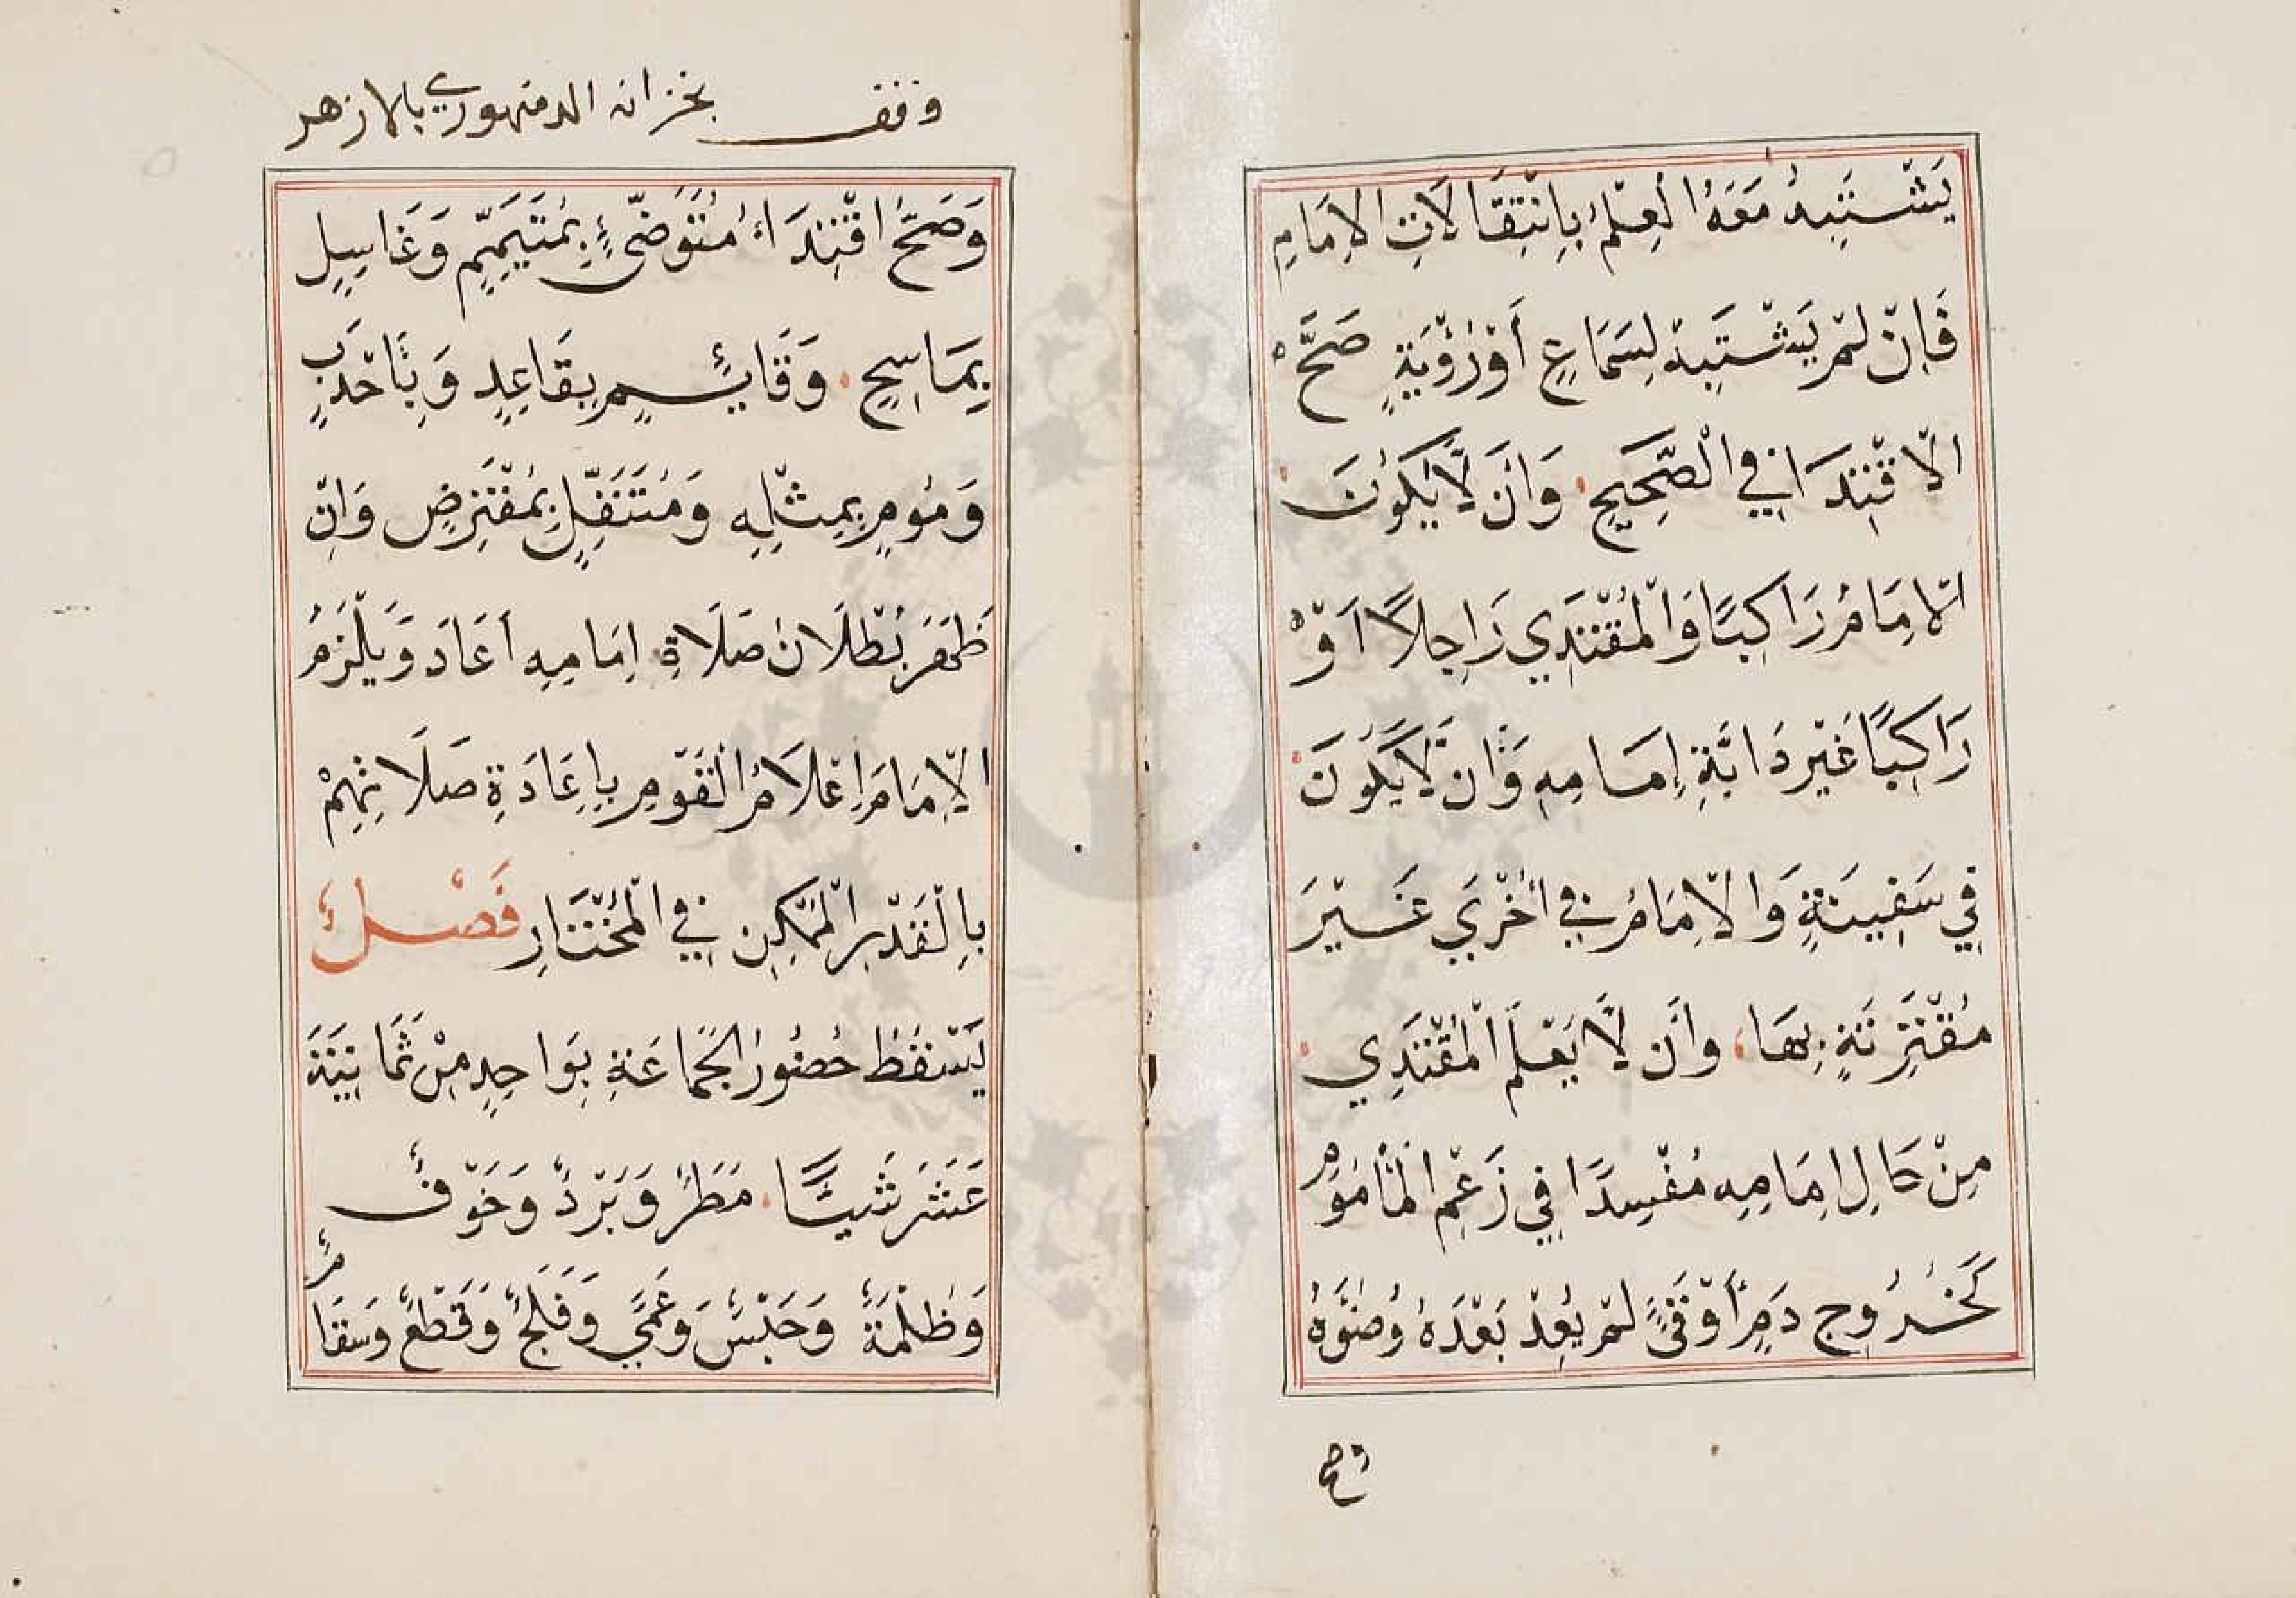 يَشْتَبِهُ مَعَهُ الْعِلْمُ بِانْتِقَالَاتِ الْاِمَامِ
فَاِنْ لَمْ يَشْتَبِهْ لِسَمَاعٍ أَوْ رُؤْيَةٍ صَحَّ
الْاِقْتِدَا فِي الصَّحِيحِ وَاَنْ لَّا يَكُونَ
الْاِمَامُ رَاكِبًا وَالْمُقْتَدِي رَاجِلًا اَوْ
رَاكِبًا غَيْرَ دَابَّةِ اِمَامِهِ وَاَنْ لَّا يَكُونَ
فِي سَفِينَةٍ وَالْاِمَامُ فِي اُخْرَي غَيْرَ
مُقْتَرِنَةٍ بِهَا وَاَنْ لَّا يَعْلَمَ الْمُقْتَدِي
مِنْ حَالِ اِمَامِهِ مُفْسِدًا فِي زَعْمِ الْمَأْمُومِ
كَخُرُوجِ دَمٍ أَوْ قَيْءٍ لَمْ يُعِدْ بَعْدَهُ وُضُؤَهُ
وصح
وقف بخزانه الدمنهوري بالازهر
وَصَحَّ اقْتِدَاءُ مُتَوَضِّئٍ بِمُتَيَمِّمٍ وَغَاسِلٍ
بِمَاسِحٍ وَقَائِمٍ بِقَاعِدٍ وَبِأَحْدَبَ
وَمُومٍ بِمِثْلِهِ وَمُتَنَفِّلٍ بِمُفْتَرِضٍ وَاِنْ
ظَهَرَ بُطْلَانُ صَلَاةِ اِمَامِهِ اَعَادَ وَيَلْزَمُ
الْاِمَامَ اِعْلَامُ الْقَوْمِ بِاِعَادَةِ صَلَاتِهِمْ
بِالْقَدْرِ الْمُمْكِنِ فِي الْمُخْتَارِ فَصْلٌ
يَسْقُطُ حُضُورُ الْجَمَاعَةِ بِوَاحِدٍ مِنْ ثَمَانِيَةَ
عَشَرَ شَيْـًٔا مَطَرٌ وَبَرْدٌ وَخَوْفٌ
وَظُلْمَةٌ وَحَبْسٌ وَعَمًي وَفَلَجٌ وَقَطْعٌ وَسَقَامٌ